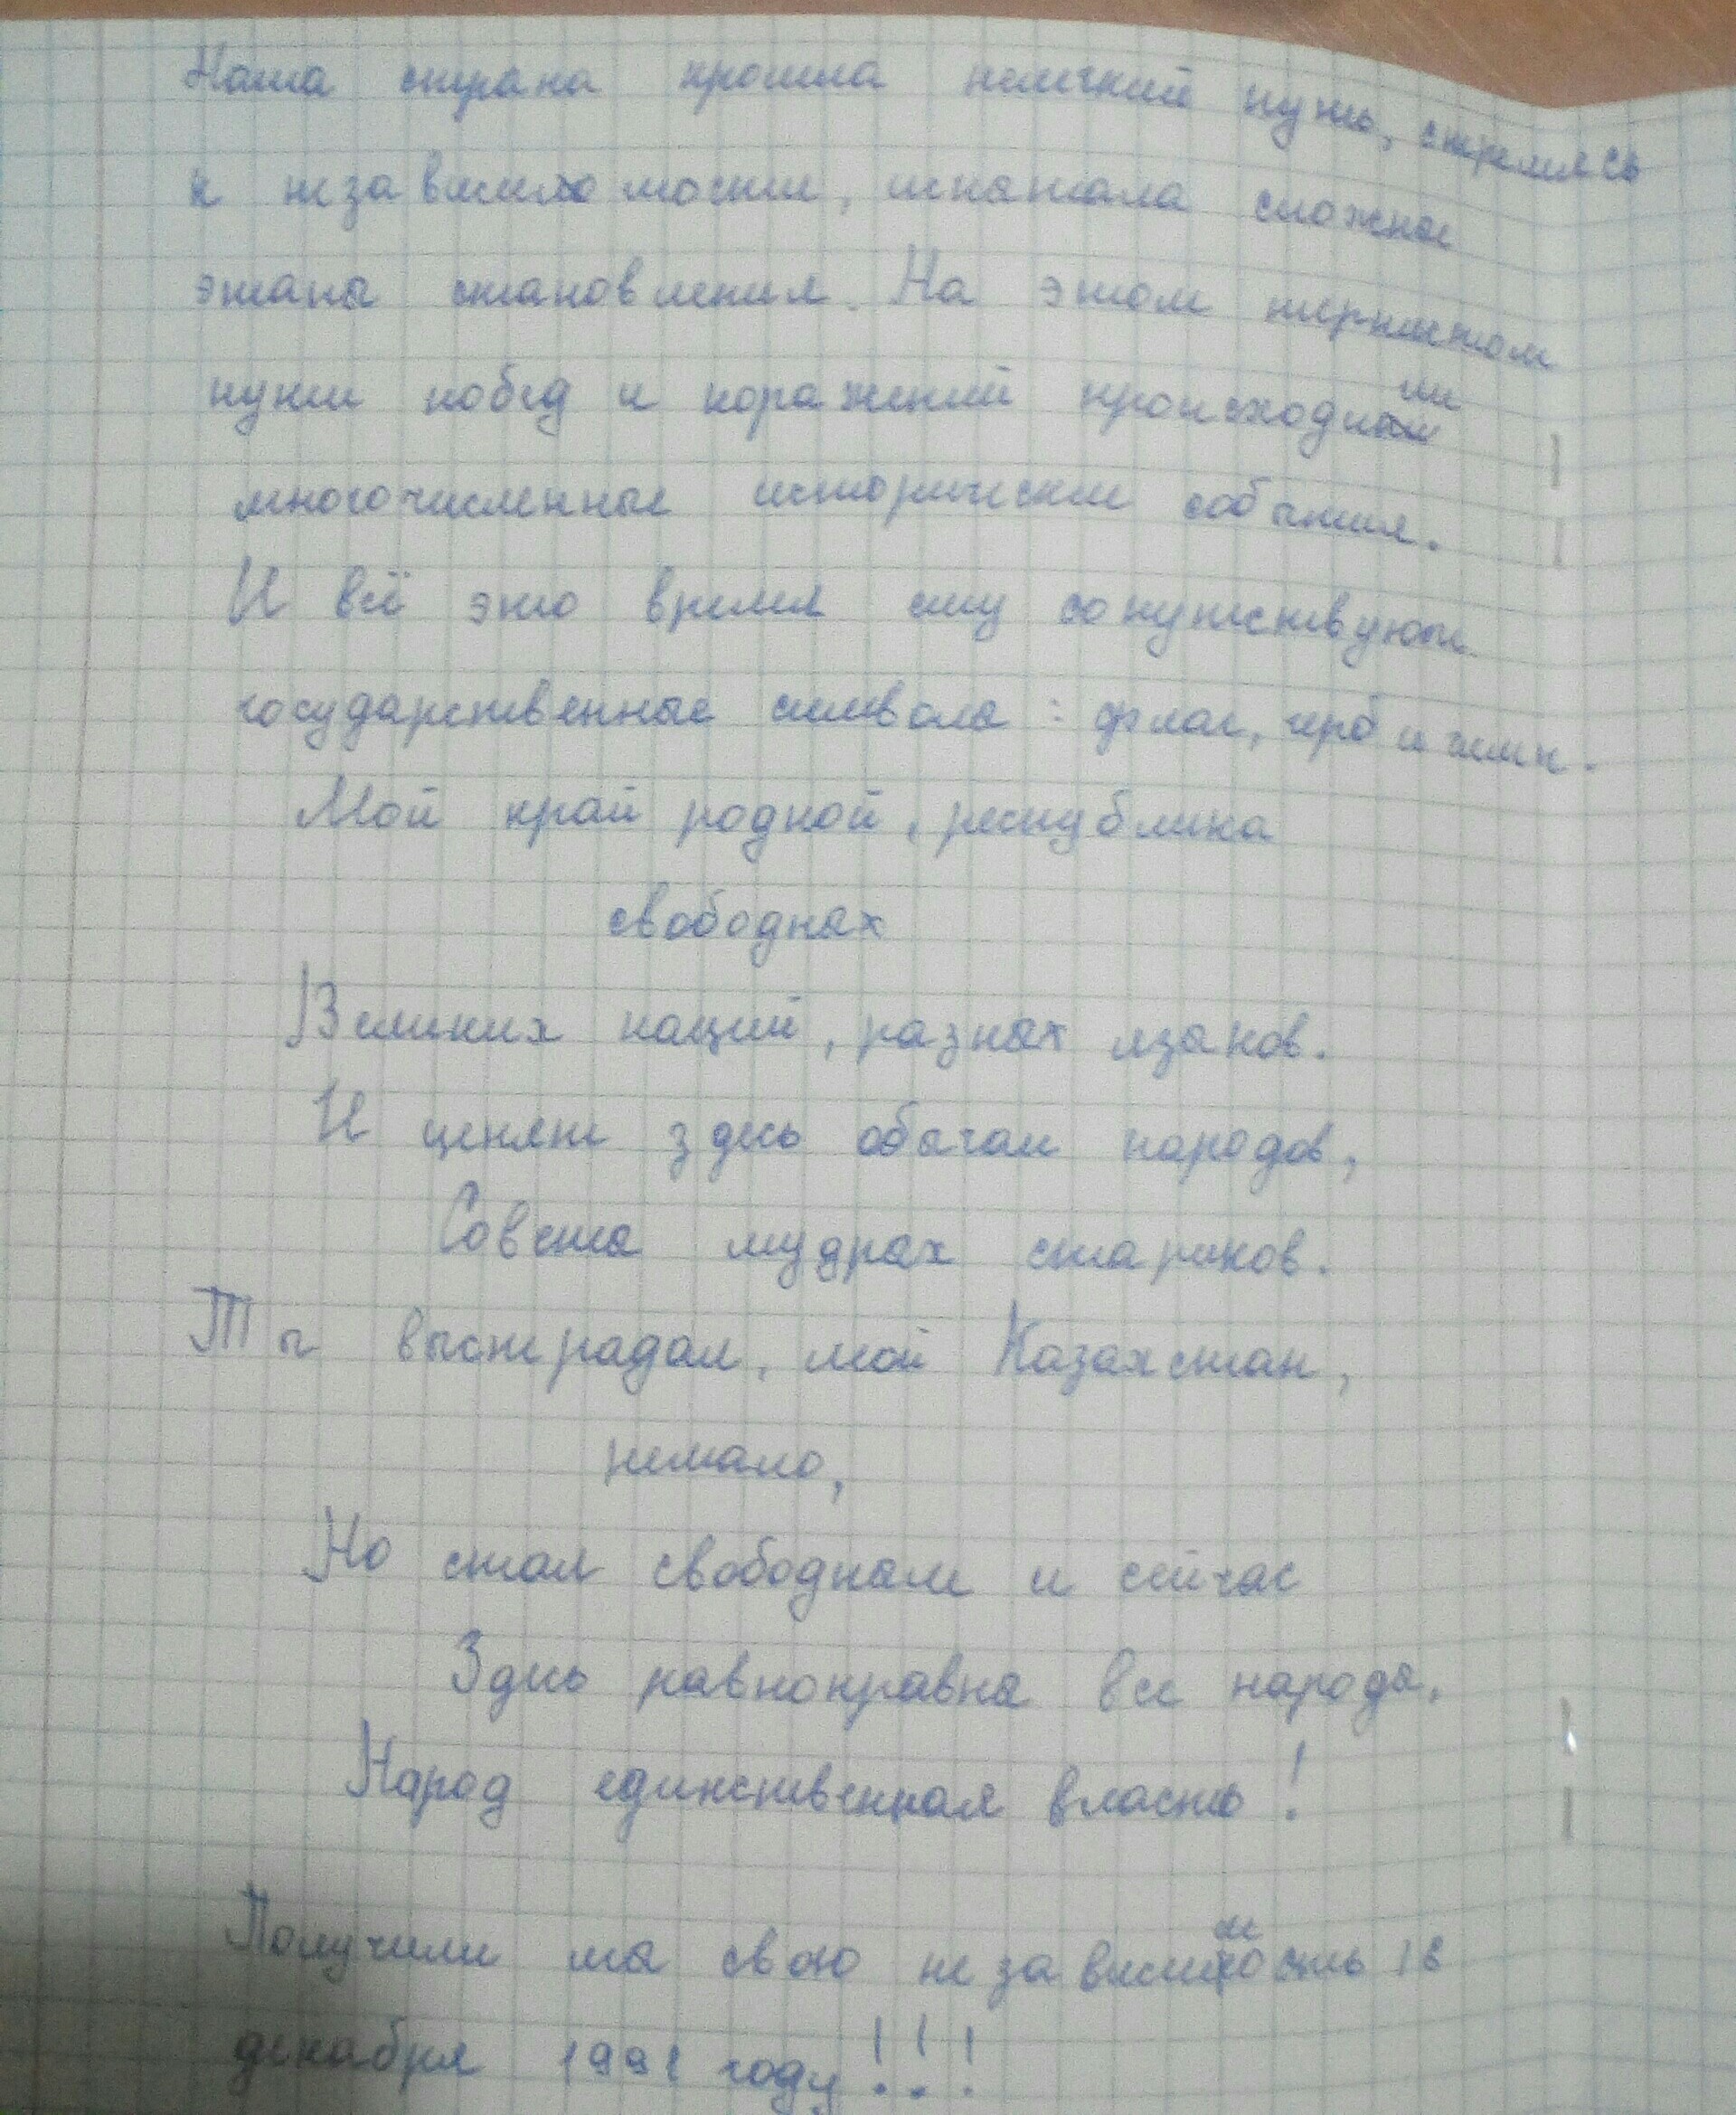 Наша страна прошла нелегкий путь, стремясь
к независимости, испытала сложные
этапы становления. На этом тернистом
пути побед и поражений происходили
многочисленные исторические события.
И всё это время ему сопутствуют
государственные символы: флаг, герб и гимн.
Мой край родной, республика
свободных
Великих наций, разных языков.
И ценят здесь обычаи народов,
Советы мудрых стариков.
Ты выстрадал, мой Казахстан,
немало,
Но стал свободным и сейчас
Здесь равноправны все народы,
Народ единственная власть!
Получили мы свою независимость 16
декабря 1991 году!!!